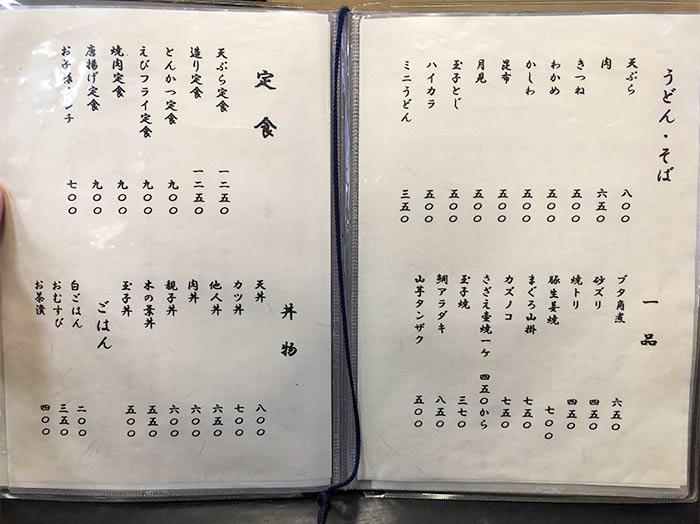 うどん・そば
天ぷら 八〇〇
肉 六五〇
きつね 五〇〇
わかめ 五〇〇
かしわ 五〇〇
昆布 五〇〇
月見 五〇〇
玉子とじ 五〇〇
ハイカラ 五〇〇
ミニうどん 三五〇
一品
ブタ角煮 六五〇
砂ズリ 四五〇
焼トリ 四五〇
豚生姜焼 七〇〇
まぐろ山掛 七五〇
カズノコ 七五〇
さざえ壺焼一ケ 四五〇から
玉子焼 三七〇
鯛アラダキ 八五〇
山芋タンザク 五〇〇
定食
天ぷら定食 一二五〇
造り定食 一二五〇
とんかつ定食 九〇〇
えびフライ定食 九〇〇
焼肉定食 九〇〇
唐揚げ定食 九〇〇
お子様ランチ 七〇〇
丼物
天丼 八〇〇
カツ丼 七〇〇
他人丼 六五〇
肉丼 六〇〇
親子丼 六〇〇
木の葉丼 五五〇
玉子丼 五〇〇
ごはん
白ごはん 二〇〇
おむすび 三五〇
お茶漬 四〇〇